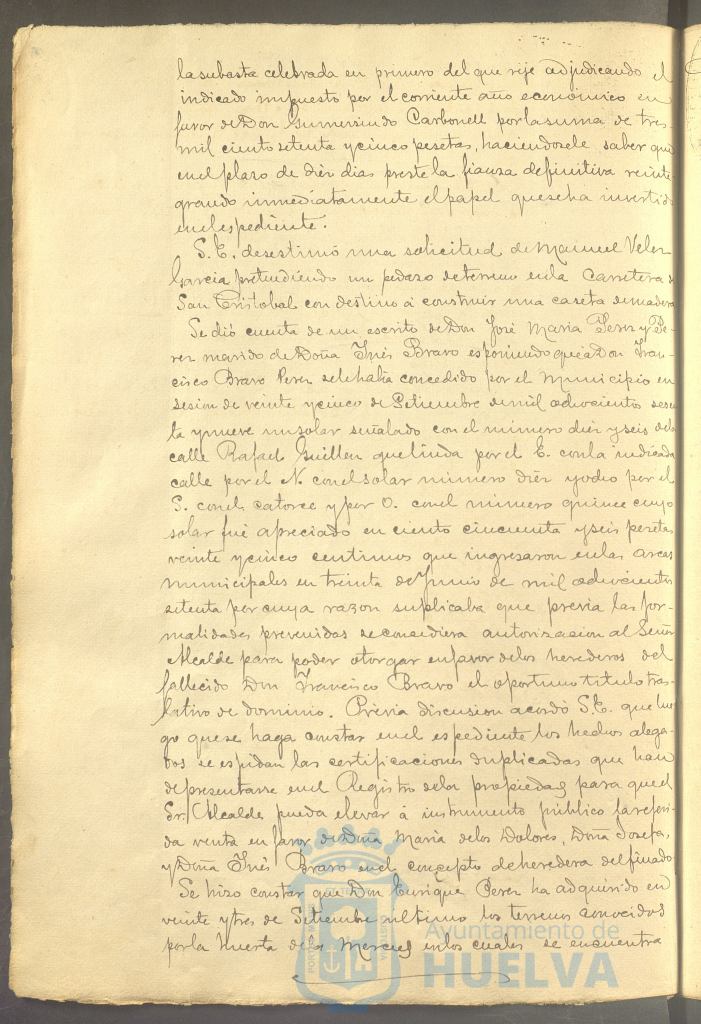 la subasta celebrada en primero del que rije adjudicando el
indicado impuesto por el corriente año economico en
favor de Don Gumersindo Carbonell por la suma de tres
mil ciento setenta y cinco pesetas, haciendosele saber que
en el plazo de diez dias preste la fianza definitiva reinte-
grando inmediatamente el papel que se ha invertido
en el espediente.
S. E. desestimó una solicitud de Manuel Velez
Garcia pretendiendo un pedazo de terreno en la Carretera de
San Cristobal con destino á construir una caseta de madera
Se dió cuenta de un escrito de Don José Maria Perez y Pe-
rez marido de Doña Inés Bravo esponiendo que á Don Fran-
cisco Bravo Perez se le habia concedido por el Municipio en
sesion de veinte y cinco de Setiembre de mil ochocientos sesen
ta y nueve un solar señalado con el número diez y seis de la
calle Rafael Guillen que linda por el E. con la indicada
calle por el N. con el solar número diez y ocho por el
S. con el catorce y por O. con el número quince cuyo
solar fué apreciado en ciento cincuenta y seis pesetas
veinte y cinco centimos que ingresaron en las arcas
municipales en treinta de Junio de mil ochocientos
setenta por cuya razon suplicaba que previa las for-
malidades prevenidas se concediera autorizacion al Señor
Alcalde para poder otorgar en favor de los herederos del
fallecido Don Francisco Bravo el oportuno titulo tras-
lativo de dominio. Prévia discusion acordó S. E. que lue
go que se haga constar en el espediente los hechos alega-
dos se espidan las certificaciones duplicadas que han
de presentarse en el Registro de la propiedad para que el
Sr. Alcalde pueda elevar á instrumento público la referi-
da venta en favor de Doña Maria de los Dolores, Doña Josefa,
y Doña Inés Bravo en el concepto de heredera del finado
Se hizo constar que Don Enrique Perez ha adquirido en
veinte y tres de Setiembre último los terrenos conocidos
por la Huerta de la Merced en los cuales se encuentra
Ayuntamiento de
HUELVA